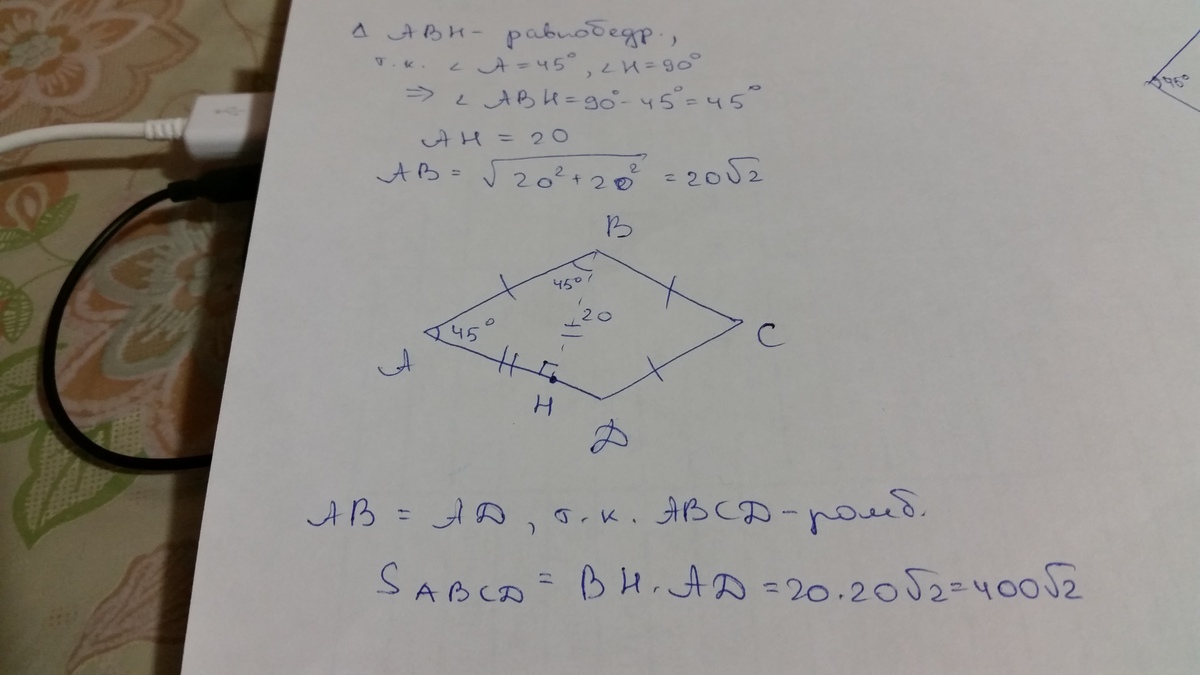 Δ ABH - равнобедр.,
т.к. ∠ A = 45°, ∠H = 90°
⇒ ∠ ABH = 90° - 45° = 45°
AH = 20
AB = √20² + 20² = 20√2
B
45°
45°
20
A
C
H
D
45°
AB = AD, т.к. ABCD - ромб.
S ABCD = BH · AD = 20 · 20√2 = 400√2